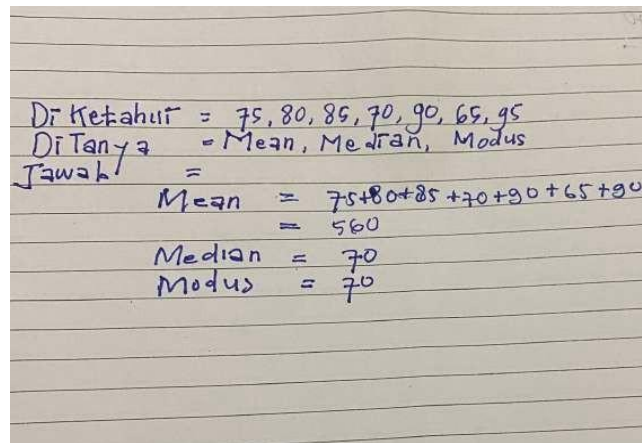 Diketahui = 75, 80, 85, 70, 90, 65, 95
DiTanya = Mean, Median, Modus
Jawab =
Mean = 75+80+85+70+90+65+90
= 560
Median = 70
Modus = 70